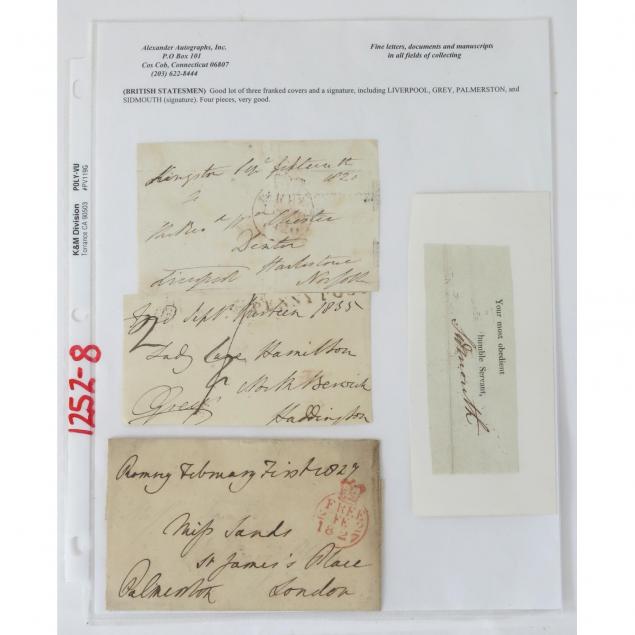 Alexander Autographs, Inc.
P.O Box 101
Cos Cob, Connecticut 06807
(203) 622-8444
Fine letters, documents and manuscripts
in all fields of collecting
(BRITISH STATESMEN) Good lot of three franked covers and a signature, including LIVERPOOL, GREY, PALMERSTON, and
SIDMOUTH (signature). Four pieces, very good.
K&M Division POLY-VU
Torrance CA 90503 #PV119G
1252-8
Kingston Sepr fifteenth
182
The Rev
Chester
Denton
Liverpool Harlestone
Norfolk
Septr thirteen 1835
PENNY PO
2
Lady Hamilton
North Berwick
Grey
Haddington
Romsey February First 1827
FREE
FE
1827
Miss Sands
St James's Place
Palmerston London
Your most obedient
humble Servant,
Sidmouth